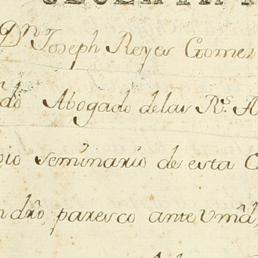 Dⁿ Joseph Reyes Gomes
do Abogado delas Rˢ. A
io seminario de esta C
dro, paresco ante Vmd,